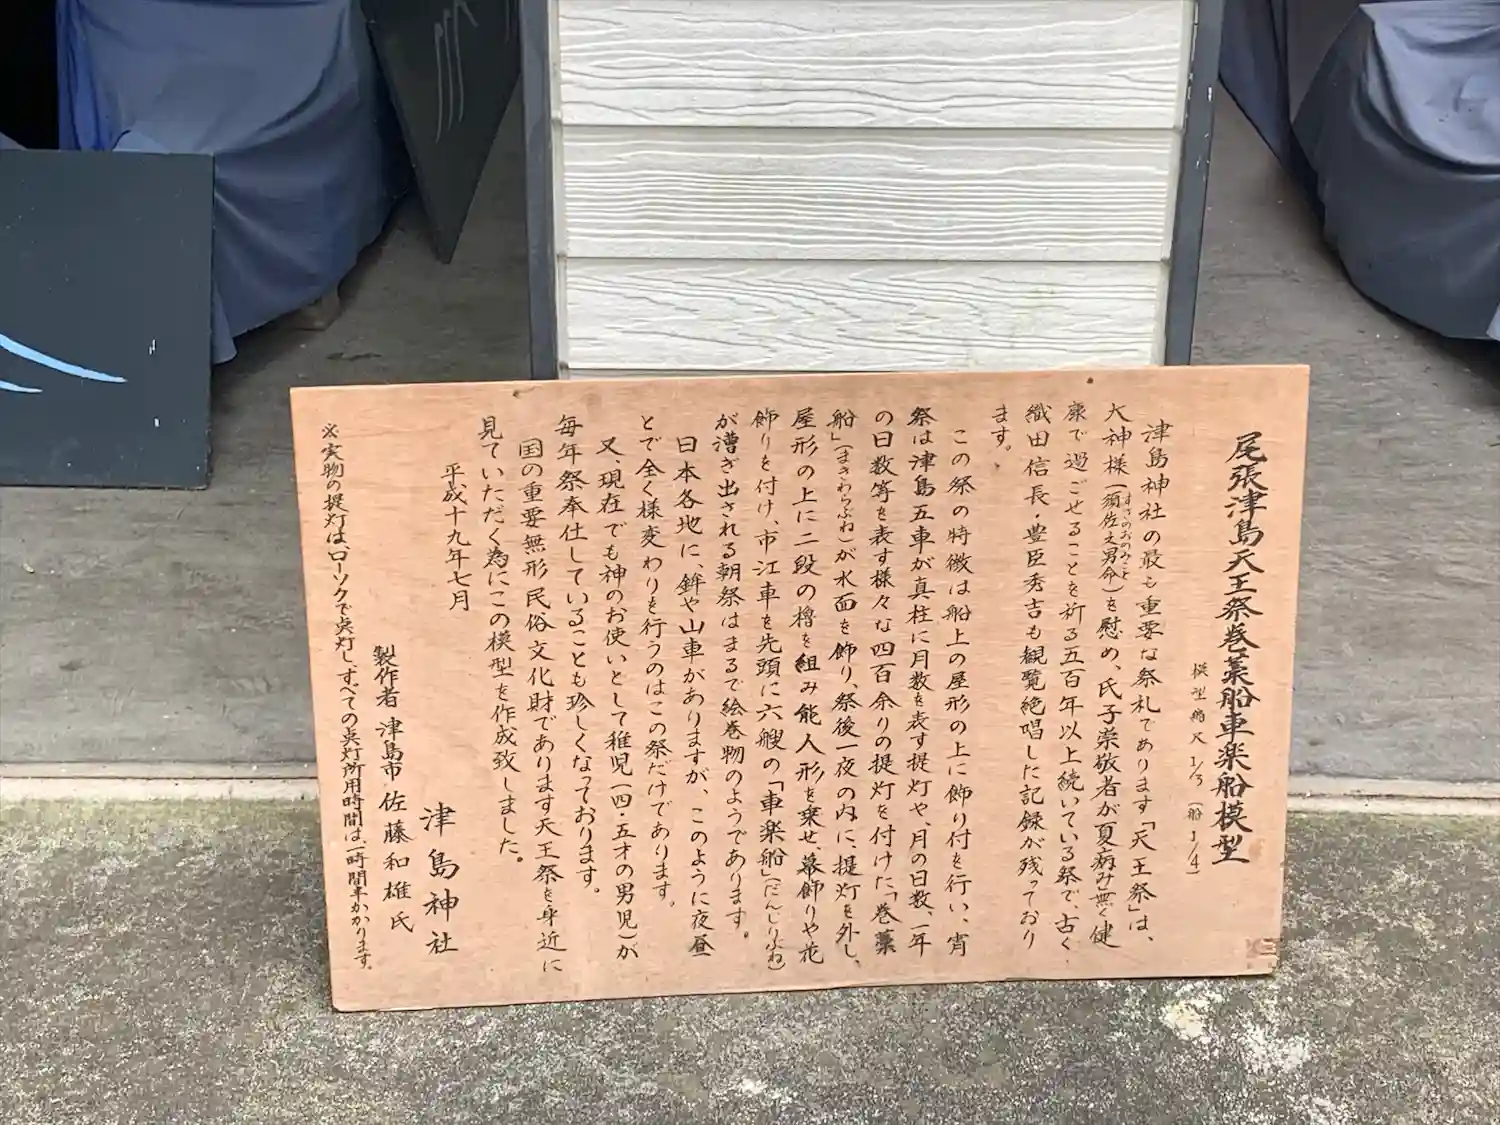 尾張津島天王祭巻藁船車楽船模型
模型縮尺 1/3 (船1/4)
津島神社の最も重要な祭礼であります「天王祭」は、
大神様(須佐之男命)を慰め、氏子崇敬者が夏病み無く健
すさのおのみこと
康で過ごせることを祈る五百年以上続いている祭で、古く
織田信長・豊臣秀吉も観覧絶唱した記録が残っており
ます。
この祭の特徴は船上の屋形の上に飾り付を行い、宵
祭は津島五車が真柱に月数を表す提灯や、月の日数、一年
の日数等を表す様々な四百余りの提灯を付けた「巻藁
船」(まきわらぶね)が水面を飾り、祭後一夜の内に、提灯を外し、
屋形の上に二段の櫓を組み能人形を乗せ、幕飾りや花
飾りを付け、市江車を先頭に六艘の「車楽船」(だんじりぶね)
が漕ぎ出される朝祭はまるで絵巻物のようであります。
日本各地に、鉾や山車がありますが、このように夜昼
とで全く様変わりを行うのはこの祭だけであります。
又、現在でも神のお使いとして稚児(四・五才の男児)が
毎年祭奉仕していることも珍しくなっております。
国の重要無形民俗文化財であります天王祭を身近に
見ていただく為にこの模型を作成致しました。
平成十九年七月
津島神社
製作者 津島市 佐藤和雄氏
※実物の提灯は、ローソクで点灯し、すべての点灯所用時間は、一時間半かかります。